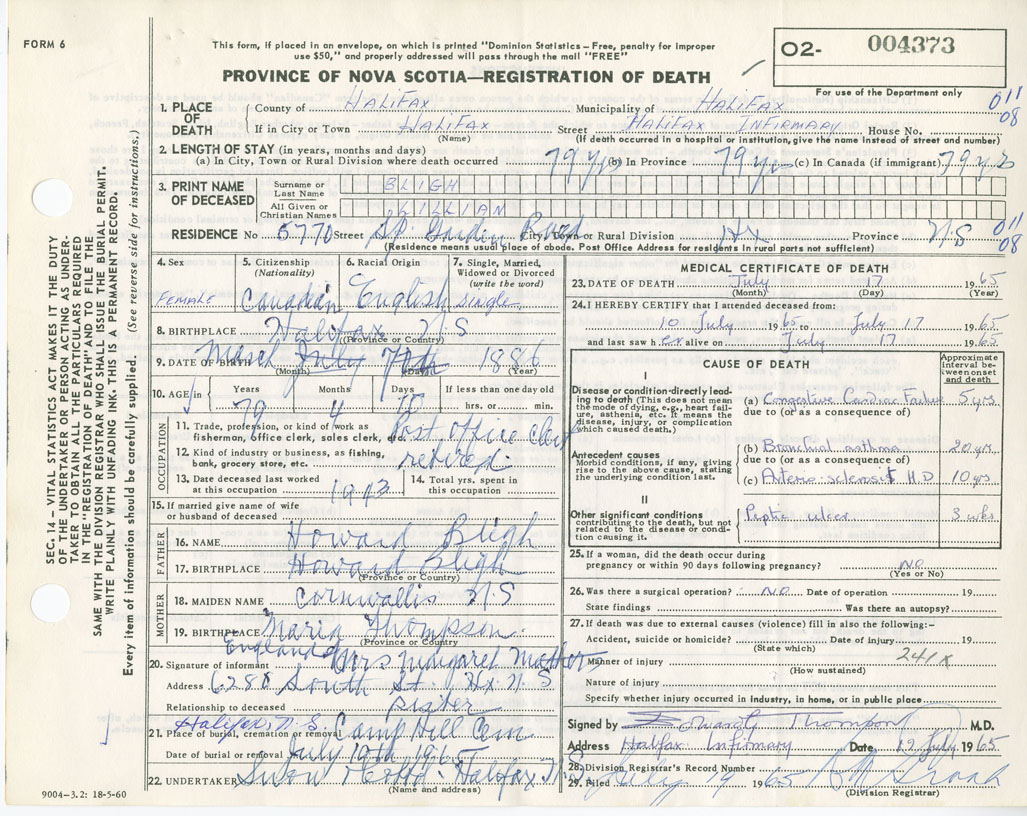 FORM 6
This form, if placed in an envelope, on which is printed "Dominion Statistics – Free, penalty for improper
use $50," and properly addressed will pass through the mail "FREE"
PROVINCE OF NOVA SCOTIA—REGISTRATION OF DEATH
O2- 004373
For use of the Department only
011
08
1. PLACE OF DEATH
County of HALIFAX Municipality of HALIFAX
If in City or Town HALIFAX Street HALIFAX INFIRMARY House No.
(Name) (If death occurred in a hospital or institution, give the name instead of street and number)
2. LENGTH OF STAY (in years, months and days)
(a) In City, Town or Rural Division where death occurred 79 yrs (b) In Province 79 yrs (c) In Canada (if immigrant) 79 yrs
3. PRINT NAME OF DECEASED
Surname or Last Name BLIGH
All Given or Christian Names LILLIAN
RESIDENCE No 5770 Street City, Town or Rural Division Hx Province N.S
011
08
(Residence means usual place of abode. Post Office Address for residents in rural parts not sufficient)
4. Sex FEMALE
5. Citizenship (Nationality) Canadian
6. Racial Origin English
7. Single, Married, Widowed or Divorced (write the word) single
8. BIRTHPLACE Halifax N S
(Province or Country)
9. DATE OF BIRTH March July 7th 1886
(Month) (Day) (Year)
10. AGE in Years 79 Months 4 Days
If less than one day old
hrs. or min.
OCCUPATION
11. Trade, profession, or kind of work as
fisherman, office clerk, sales clerk, etc. Post office Clerk
12. Kind of industry or business, as fishing,
bank, grocery store, etc. retired
13. Date deceased last worked
at this occupation 1943
14. Total yrs. spent in
this occupation
15. If married give name of wife
or husband of deceased
FATHER
16. NAME Howard Bligh
17. BIRTHPLACE Howard Bligh
(Province or Country)
MOTHER
18. MAIDEN NAME Cornwallis N S
19. BIRTHPLACE Maria Thompson
(Province or Country)
England
20. Signature of informant Mrs Margaret
Address 6288 South St. Hx. N S
Relationship to deceased sister
Halifax, N.S.
21. Place of burial, cremation or removal Camp Hill Cem
Date of burial or removal July 19th 1965
22. UNDERTAKER Halifax N.S
(Name and address)
MEDICAL CERTIFICATE OF DEATH
23. DATE OF DEATH July 17 1965
(Month) (Day) (Year)
24. I HEREBY CERTIFY that I attended deceased from:
10 July 1965 to July 17 1965
and last saw her alive on July 17 1965
CAUSE OF DEATH
Approximate interval between onset and death
I
Disease or condition directly leading to death (This does not mean the mode of dying, e.g., heart failure, asthenia, etc. It means the disease, injury, or complication which caused death.)
(a) Congestive Cardiac Failure 5 yrs
due to (or as a consequence of)
Antecedent causes
Morbid conditions, if any, giving rise to the above cause, stating the underlying condition last.
(b) Bronchial asthma 20 yrs
due to (or as a consequence of)
(c) Arterio-sclerosis H D 10 yrs
II
Other significant conditions
contributing to the death, but not related to the disease or condition causing it.
Peptic ulcer 3 wks
25. If a woman, did the death occur during
pregnancy or within 90 days following pregnancy? NO
(Yes or No)
26. Was there a surgical operation? NO Date of operation 19
State findings Was there an autopsy?
27. If death was due to external causes (violence) fill in also the following:-
Accident, suicide or homicide? Date of injury 19
(State which)
241x
Manner of injury
(How sustained)
Nature of injury
Specify whether injury occurred in industry, in home, or in public place
Signed by Thompson M.D.
Address Halifax Infirmary Date 19 July 1965
28. Division Registrar's Record Number
29. Filed July 19 1965
(Division Registrar)
SEC. 14 – VITAL STATISTICS ACT MAKES IT THE DUTY
OF THE UNDERTAKER OR PERSON ACTING AS UNDER-
TAKER TO OBTAIN ALL THE PARTICULARS REQUIRED
IN THE "REGISTRATION OF DEATH" AND TO FILE THE
SAME WITH THE DIVISION REGISTRAR WHO SHALL ISSUE THE BURIAL PERMIT.
WRITE PLAINLY WITH UNFADING INK. THIS IS A PERMANENT RECORD.
Every item of information should be carefully supplied. (See reverse side for instructions.)
9004-3.2: 18-5-60